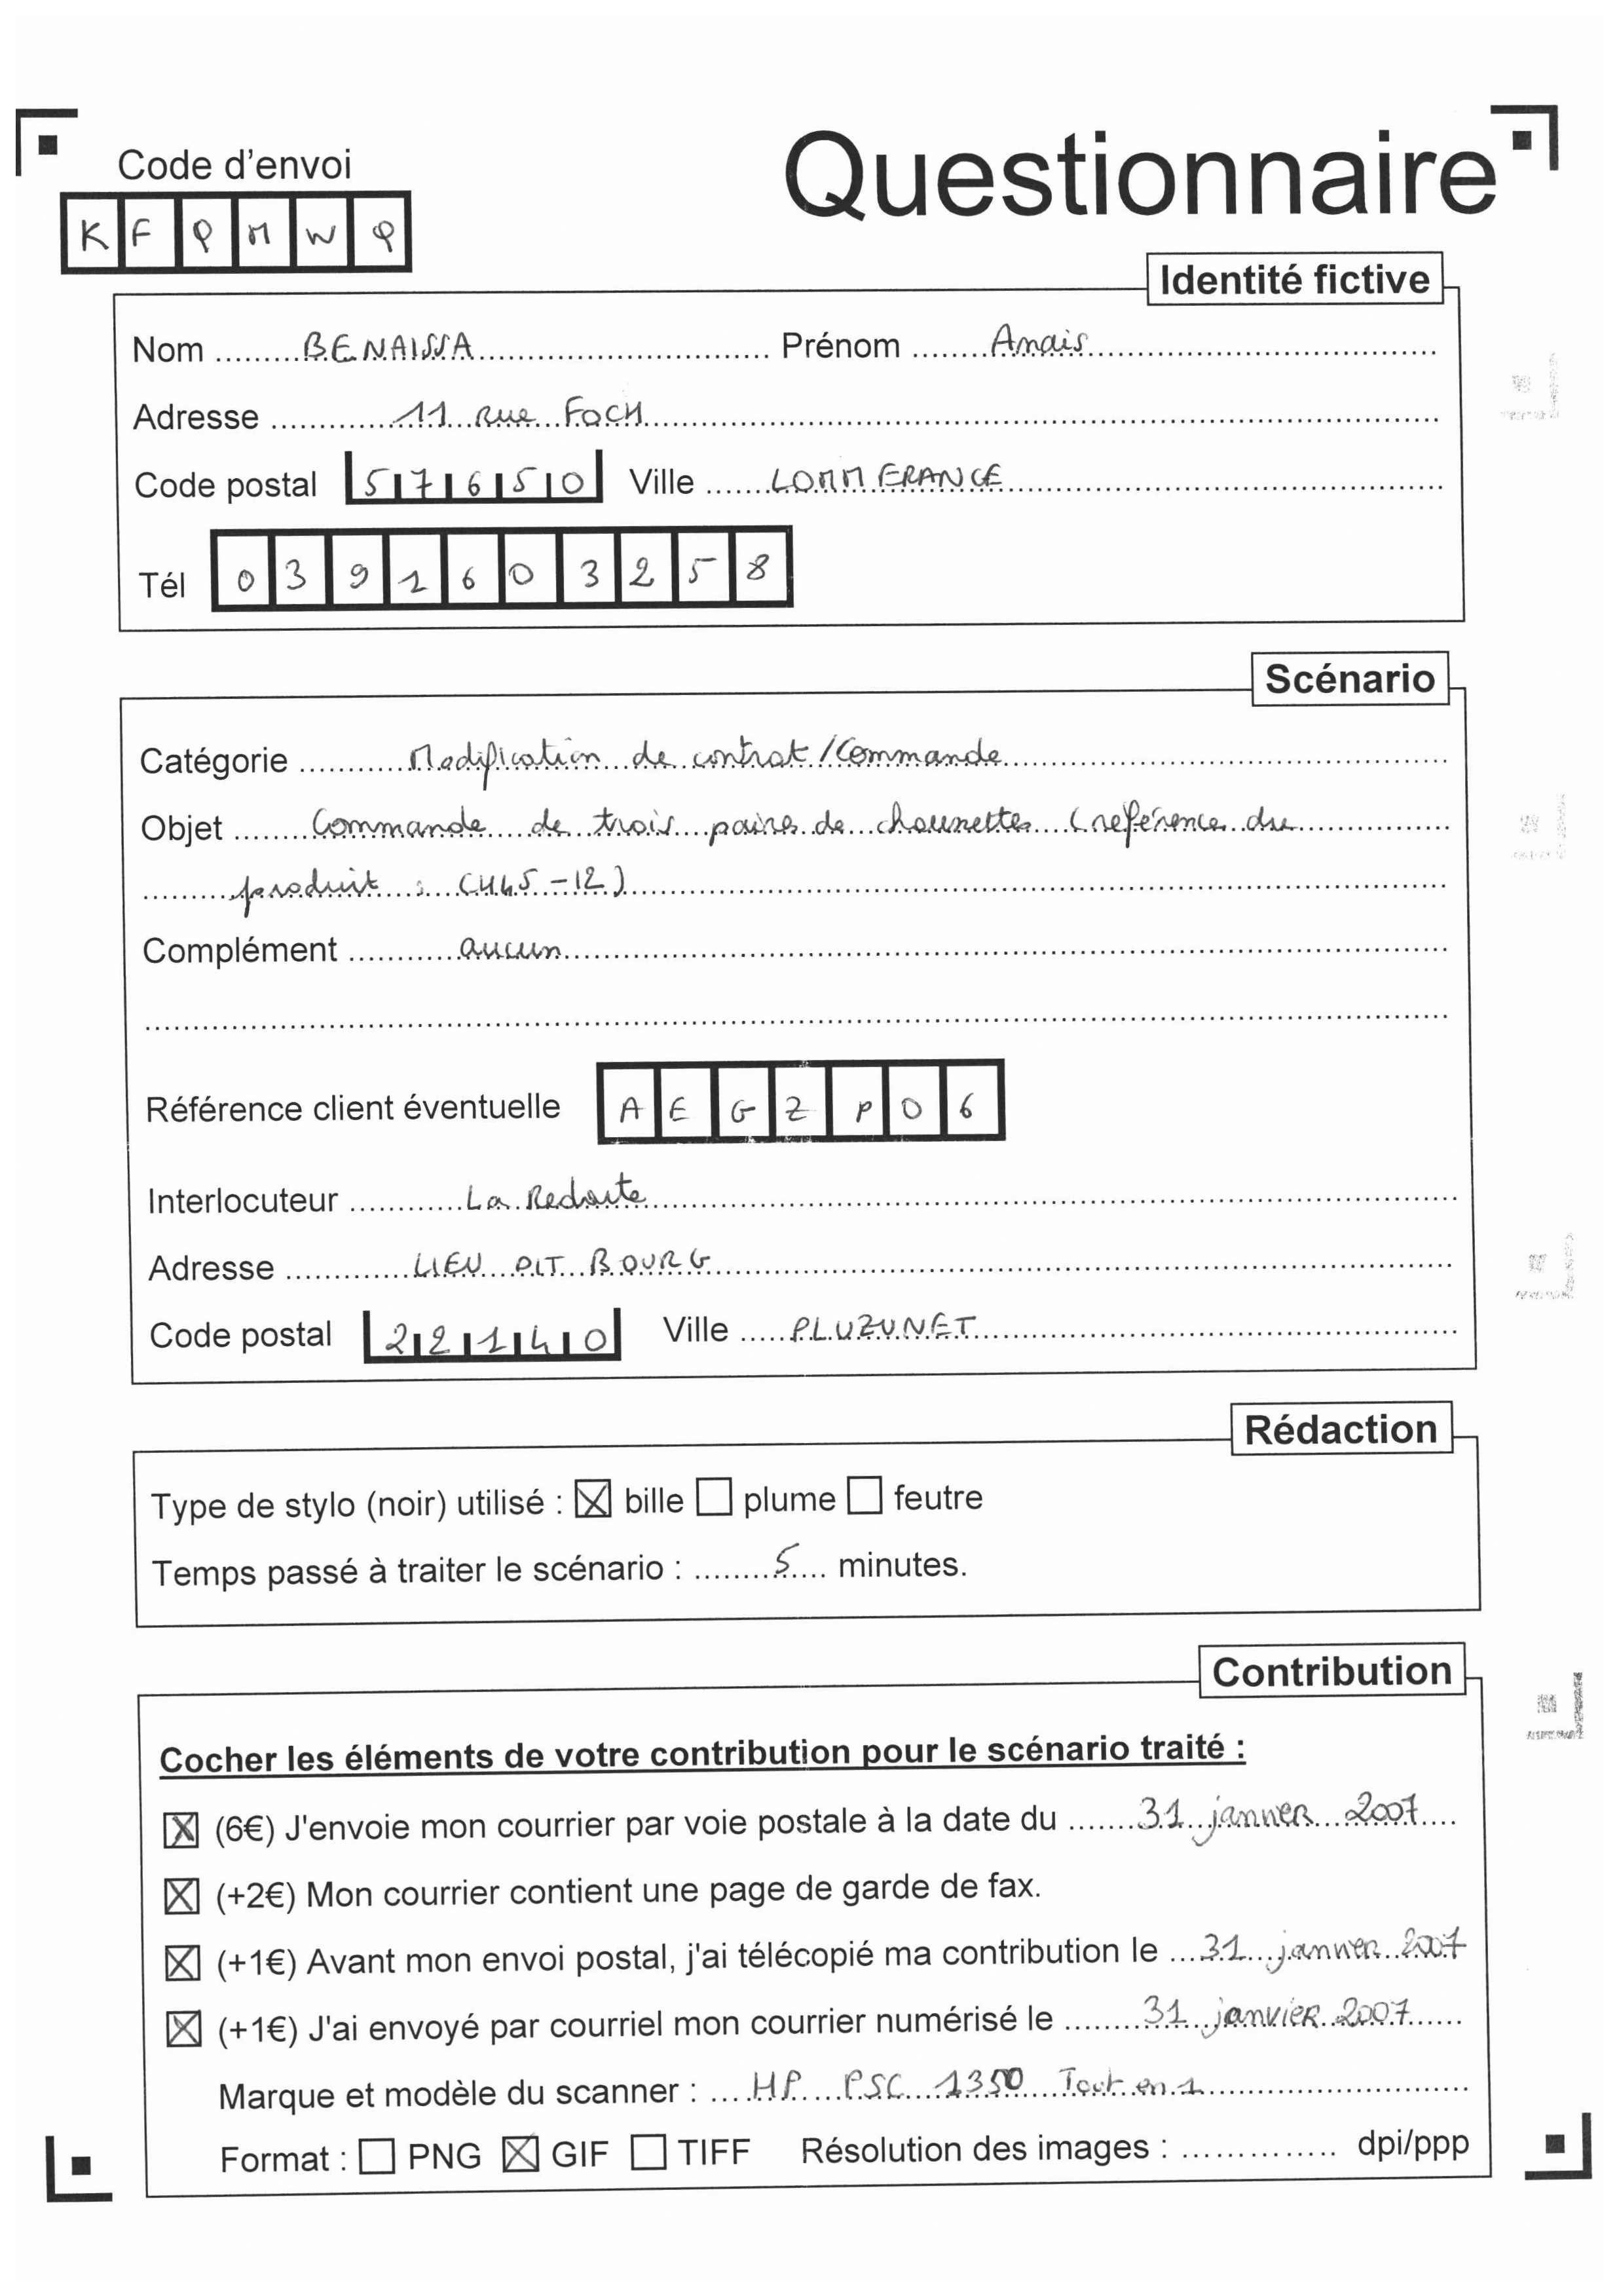 Questionnaire
Code d'envoi
K F P M W P
Identité fictive
Nom ......... BENAISSA ......... Prénom ......... Anais .........
Adresse ......... 11 rue FOCH .........
Code postal 57650 Ville ......... LOMMERANGE .........
Tél 0391603258
Scénario
Catégorie ......... Modification de contrat / Commande .........
Objet ......... Commande de trois paires de chaussettes (référence du
produit : CH45-12) .........
Complément ......... aucun .........
Référence client éventuelle AEGZP06
Interlocuteur ......... La Redoute .........
Adresse ......... LIEU DIT BOURG .........
Code postal 22140 Ville ......... PLUZUNET .........
Rédaction
Type de stylo (noir) utilisé : ☒ bille ☐ plume ☐ feutre
Temps passé à traiter le scénario : ......... 5 .... minutes.
Contribution
Cocher les éléments de votre contribution pour le scénario traité :
☒ (6€) J'envoie mon courrier par voie postale à la date du ....... 31 janvier 2007 ....
☒ (+2€) Mon courrier contient une page de garde de fax.
☒ (+1€) Avant mon envoi postal, j'ai télécopié ma contribution le ... 31 janvier 2007
☒ (+1€) J'ai envoyé par courriel mon courrier numérisé le ......... 31 janvier 2007 ......
Marque et modèle du scanner : .... HP PSC 1350 Tout en 1 .........
Format : ☐ PNG ☒ GIF ☐ TIFF Résolution des images : .............. dpi/ppp